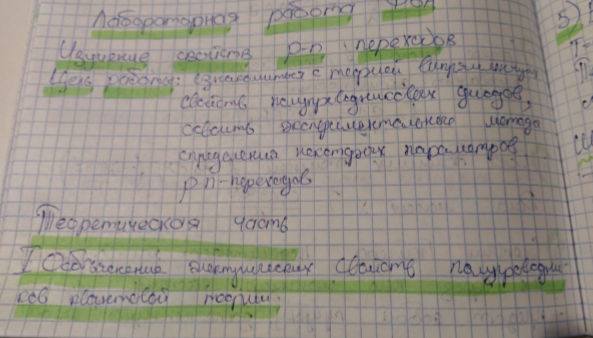 Лабораторная работа
Изучение свойств p-n переходов
Цель работы: ознакомиться с теорией выпрямляющих
свойств полупроводниковых диодов,
освоить экспериментальные метода
определения некоторых параметров
p-n-переходов
Теоретическая часть
I Объяснение электрических свойств полупроводни-
ков квантовой теории.
5)